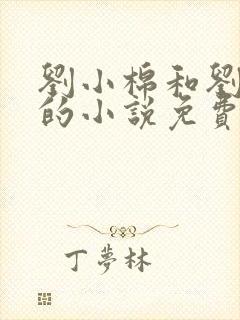 劉小棉和劉
的小說免費
丁夢林